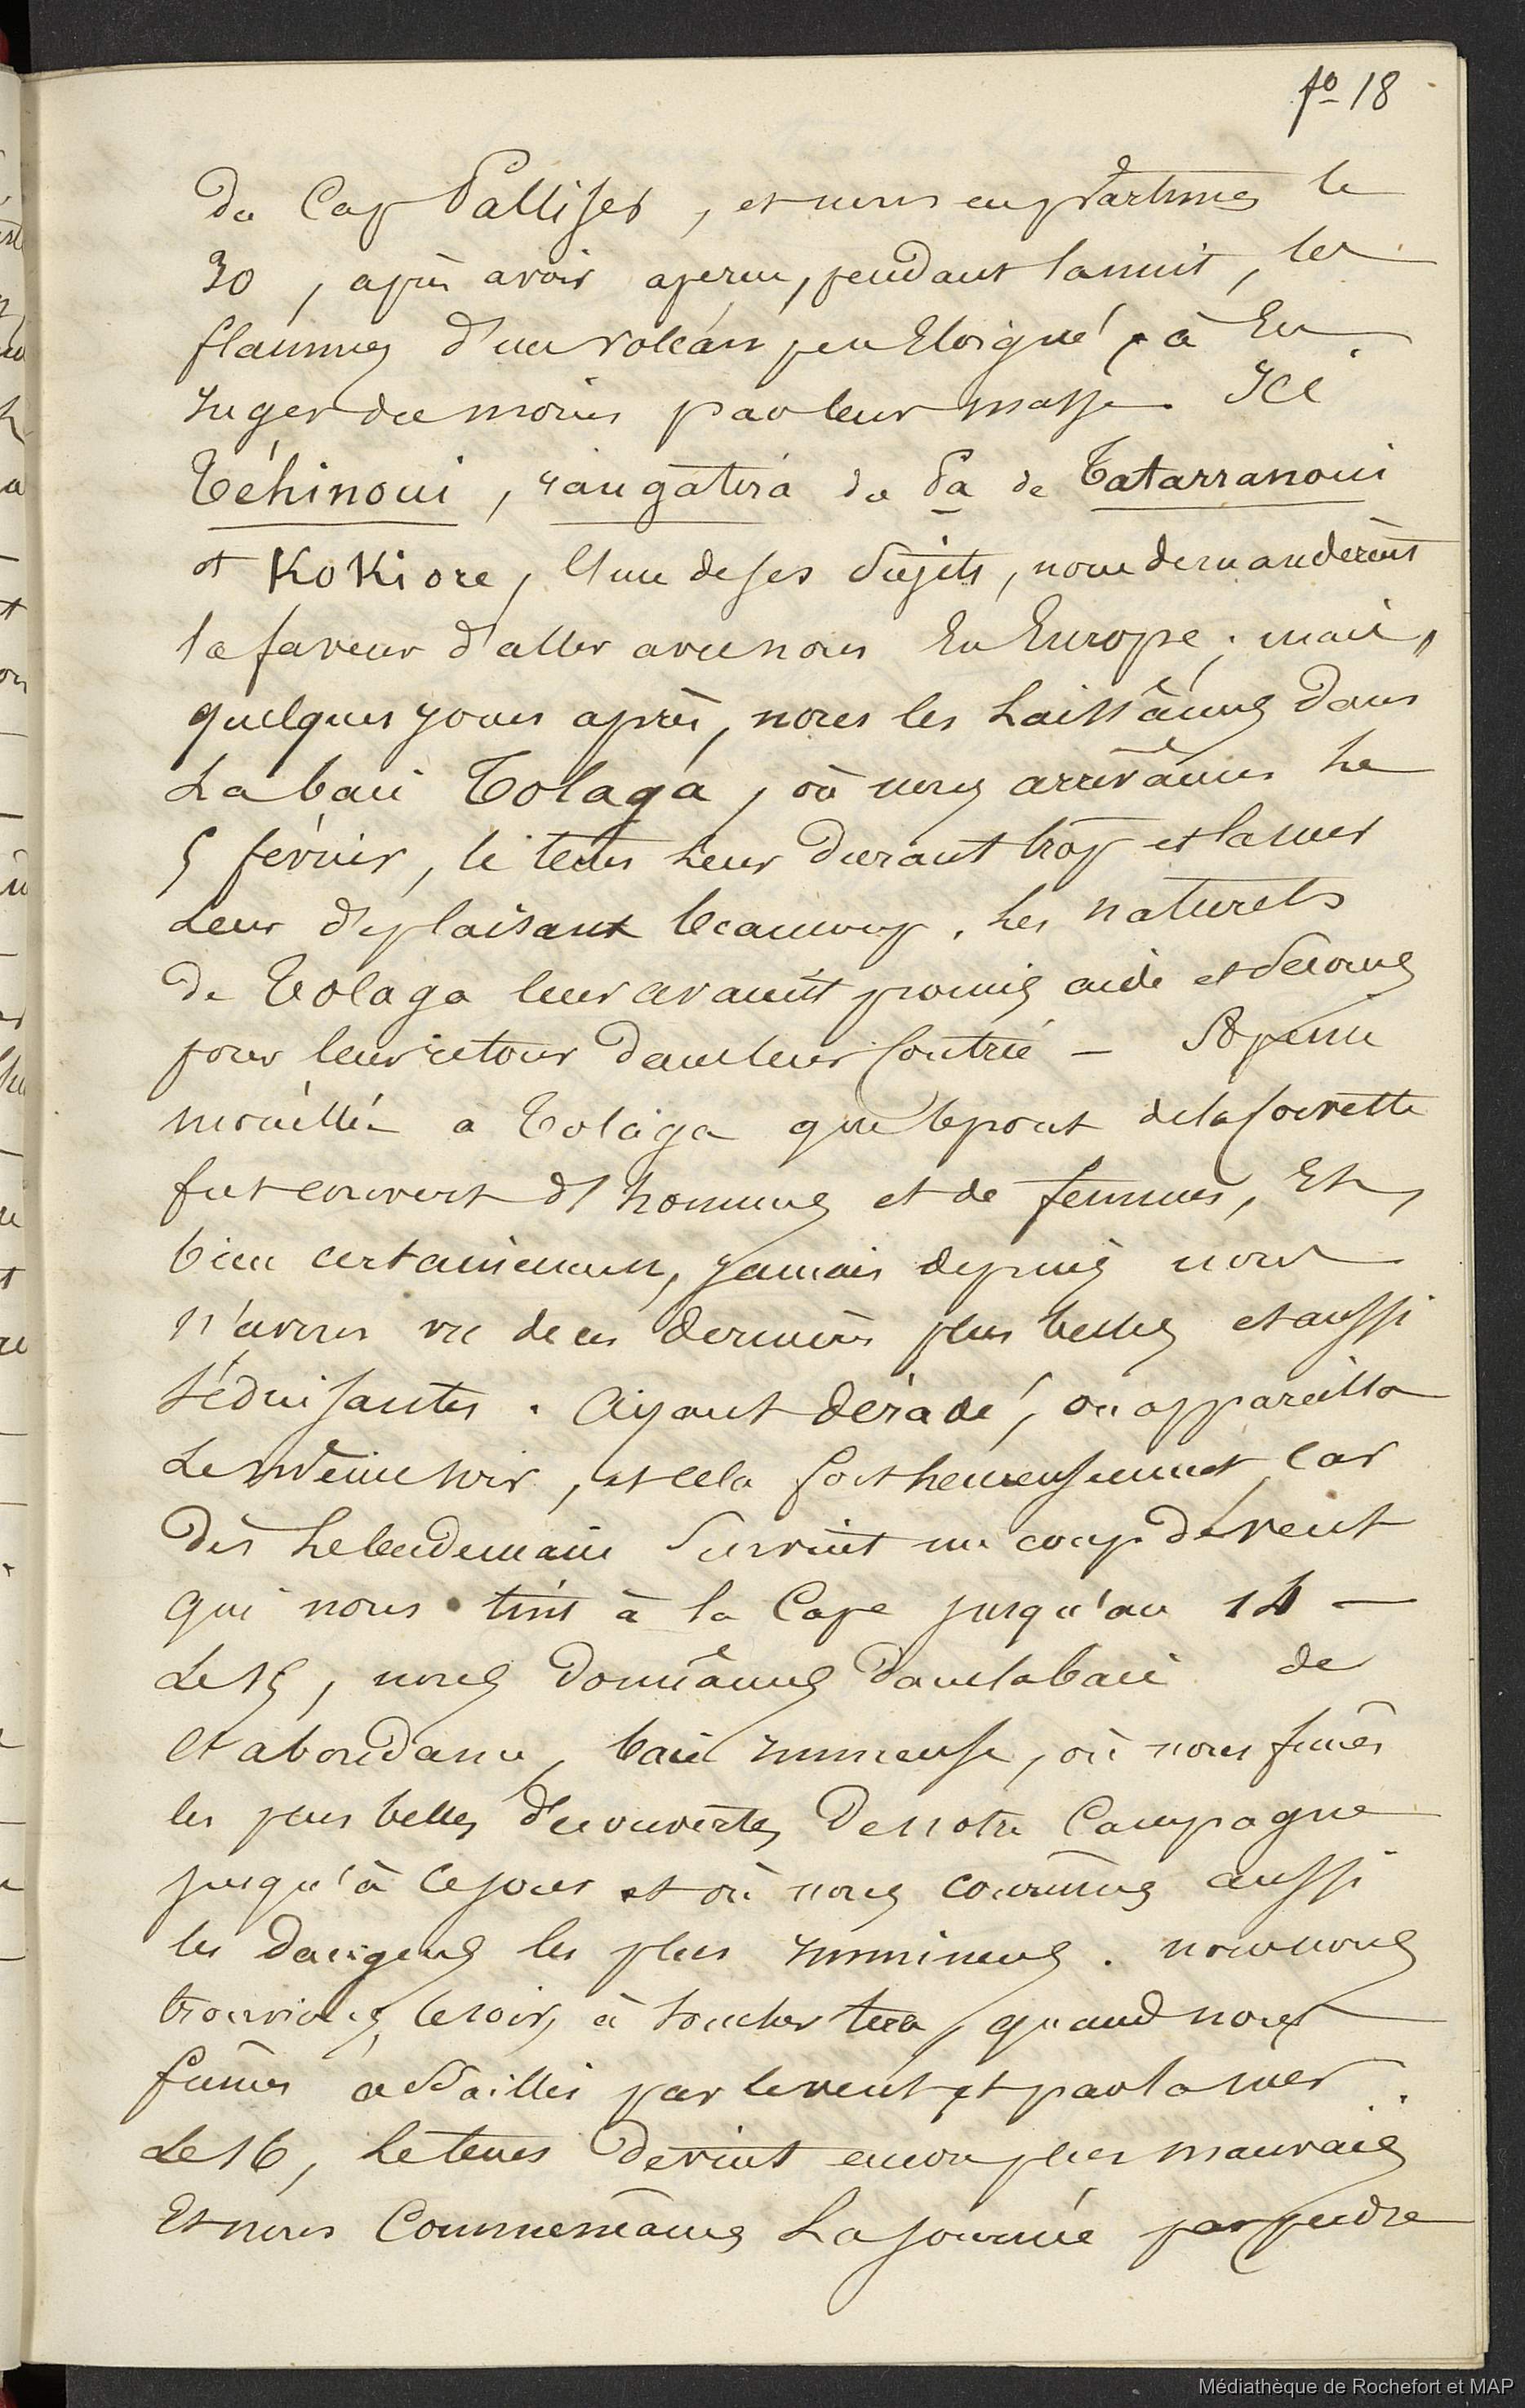 fo 18
du Cap Palliser, et nous en partîmes le
30, après avoir aperçu, pendant la nuit, les
flammes d'un volcan peu Eloigné, à En
Juger du moins par leur masse. Ici
Téhinoui, rangatira du Pa de Tatarranoui
et KoKiore, l'un de ses Sujets, nous demanderènt
la faveur d'aller avec nous En Europe; mais,
quelques jours après, nous les Laissâmes dans
La baie Tolaga, où nous arrivâmes Le
5 février, le tems Leur durant trop et la mer
Leur déplaisant beaucoup. Les naturels
de Tolaga leur avaient promis aide et Secours
pour leur retour dans leur Contrée — à peine
mouillés a Tolaga que le pont de la Corvette
fut couvert d'hommes et de femmes, Et,
bien certainement, jamais depuis nous
n'avons vu de ces dernières plus belles et aussi
Séduisantes. Ayant déradé, on appareilla
Le même soir, et cela fort heureusement, Car
Dès Le lendemain Survint un coup de vent
qui nous tint à la Cape jusqu'au 14 —
Le 15, nous donnâmes dans la baie de
l'abondance, baie Immense, où nous fîmes
les plus belles découvertes De notre Campagne
jusqu'à ce jour et où nous courûmes aussi
les dangers les plus Imminens. nous nous
trouvions, le soir, à toucher terre, quand nous
fûmes assaillis par le vent et par la mer.
Le 16, Le tems Devint encore plus mauvais
Et nous Commençâmes La journée par perdre
Médiathèque de Rochefort et MAP